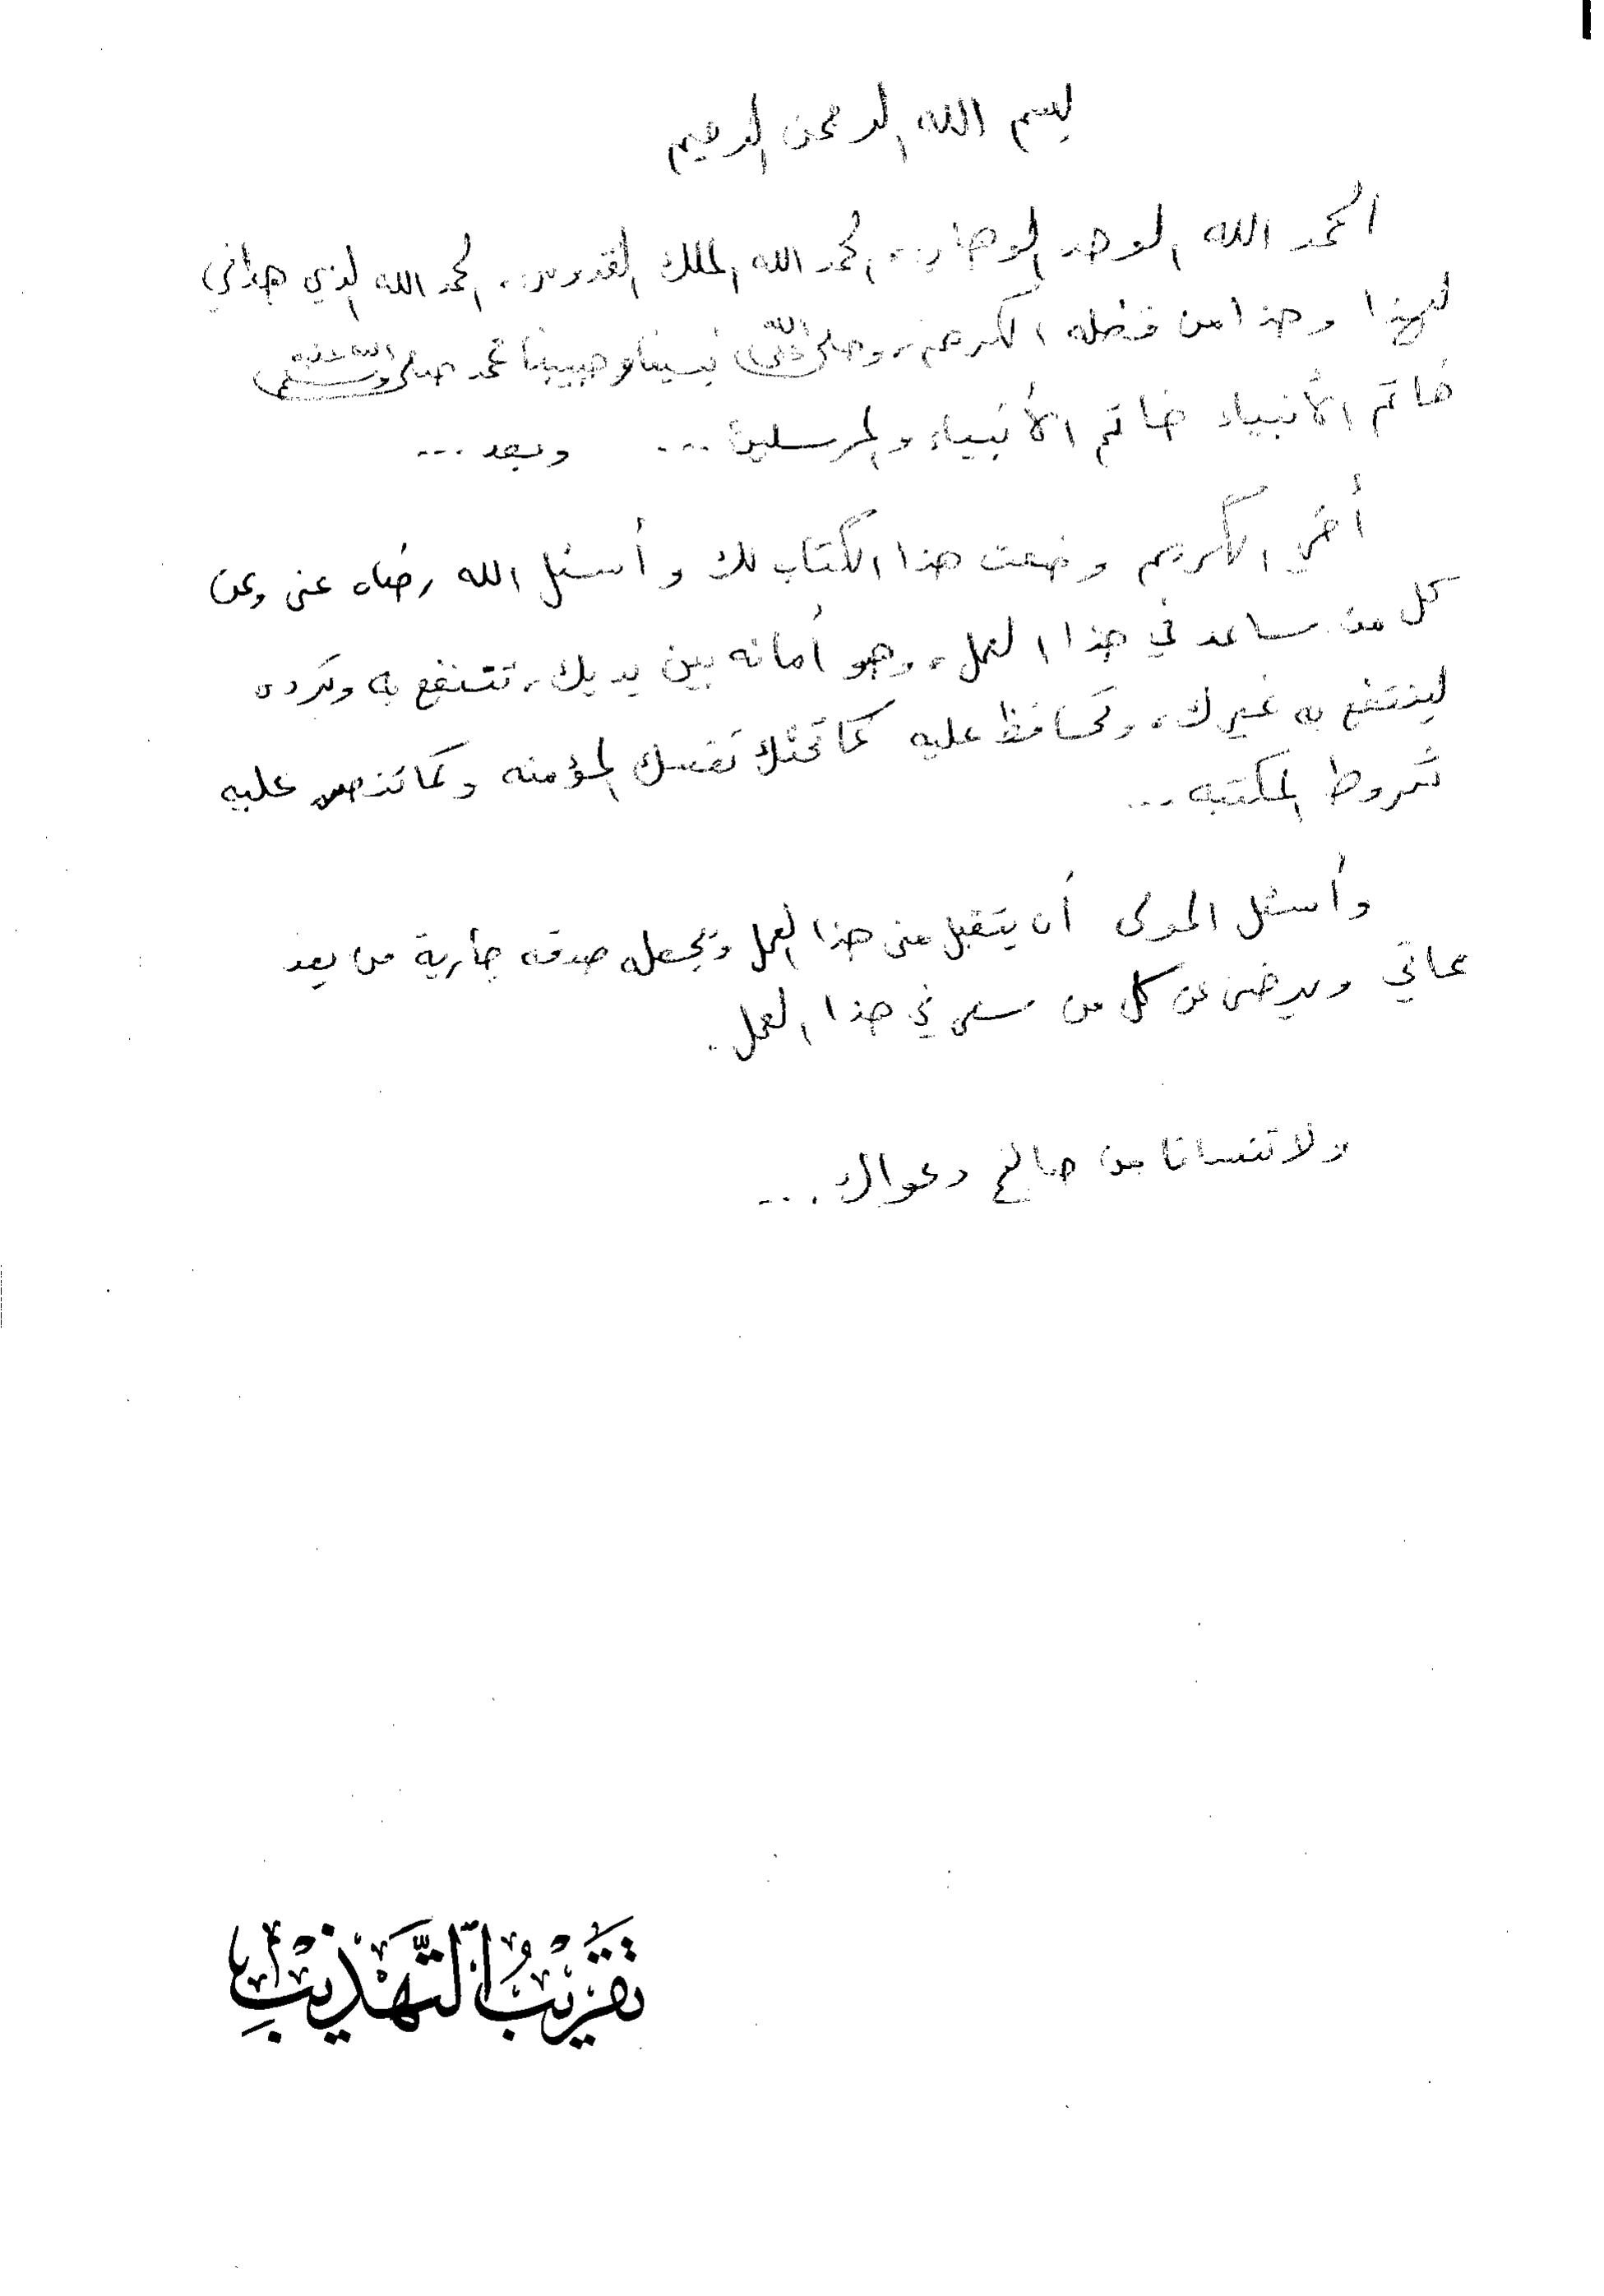 بسم الله الرحمن الرحيم
الحمد الله الوحد الوهاب، الحمد الله الملك القدوس، الحمد الله الذي هداني
لهذا وهذا من فضله الكرم، وصلى الله على نبينا وحبيبنا محمد صلى الله عليه وسلم
خاتم الأنبياء خاتم الأنبياء والمرسلين... وبعد...
أخي الكريم وضعت هذا الكتاب لك وأسئل الله رضاه عنى وعن
كل من ساعد في هذا العمل، وهو أمانه بين يديك، تنتفع به وترده
لينتفع به غيرك، وتحافظ عليه كما تحثك نفسك المؤمنه وكما تنص عليه
شروط المكتبه...
وأسئل المولى أن يتقبل منى هذا العمل ويجعله صدقه جارية من بعد
مماتي ويرضى عن كل من سعى في هذا العمل.
ولا تنسانا من صالح دعواك...
تَقْرِيبُ التَّهْذِيبِ